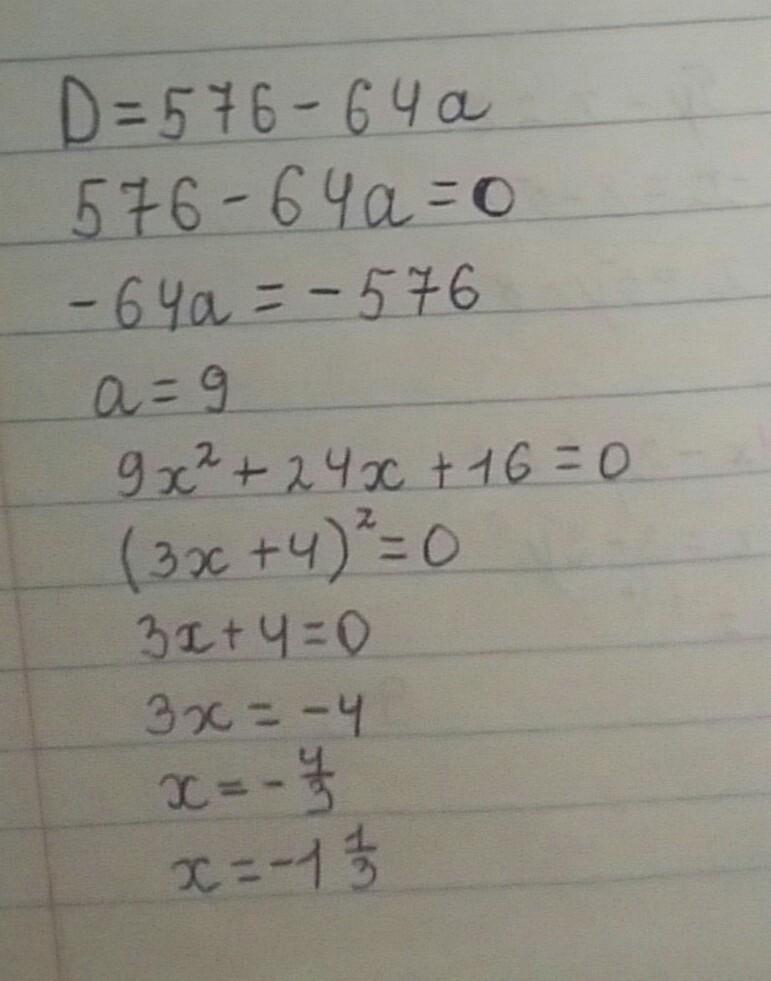 D=576-64a
576-64a=0
-64a=-576
a=9
9x²+24x+16=0
(3x+4)²=0
3x+4=0
3x=-4
x=-4/3
x=-1 1/3